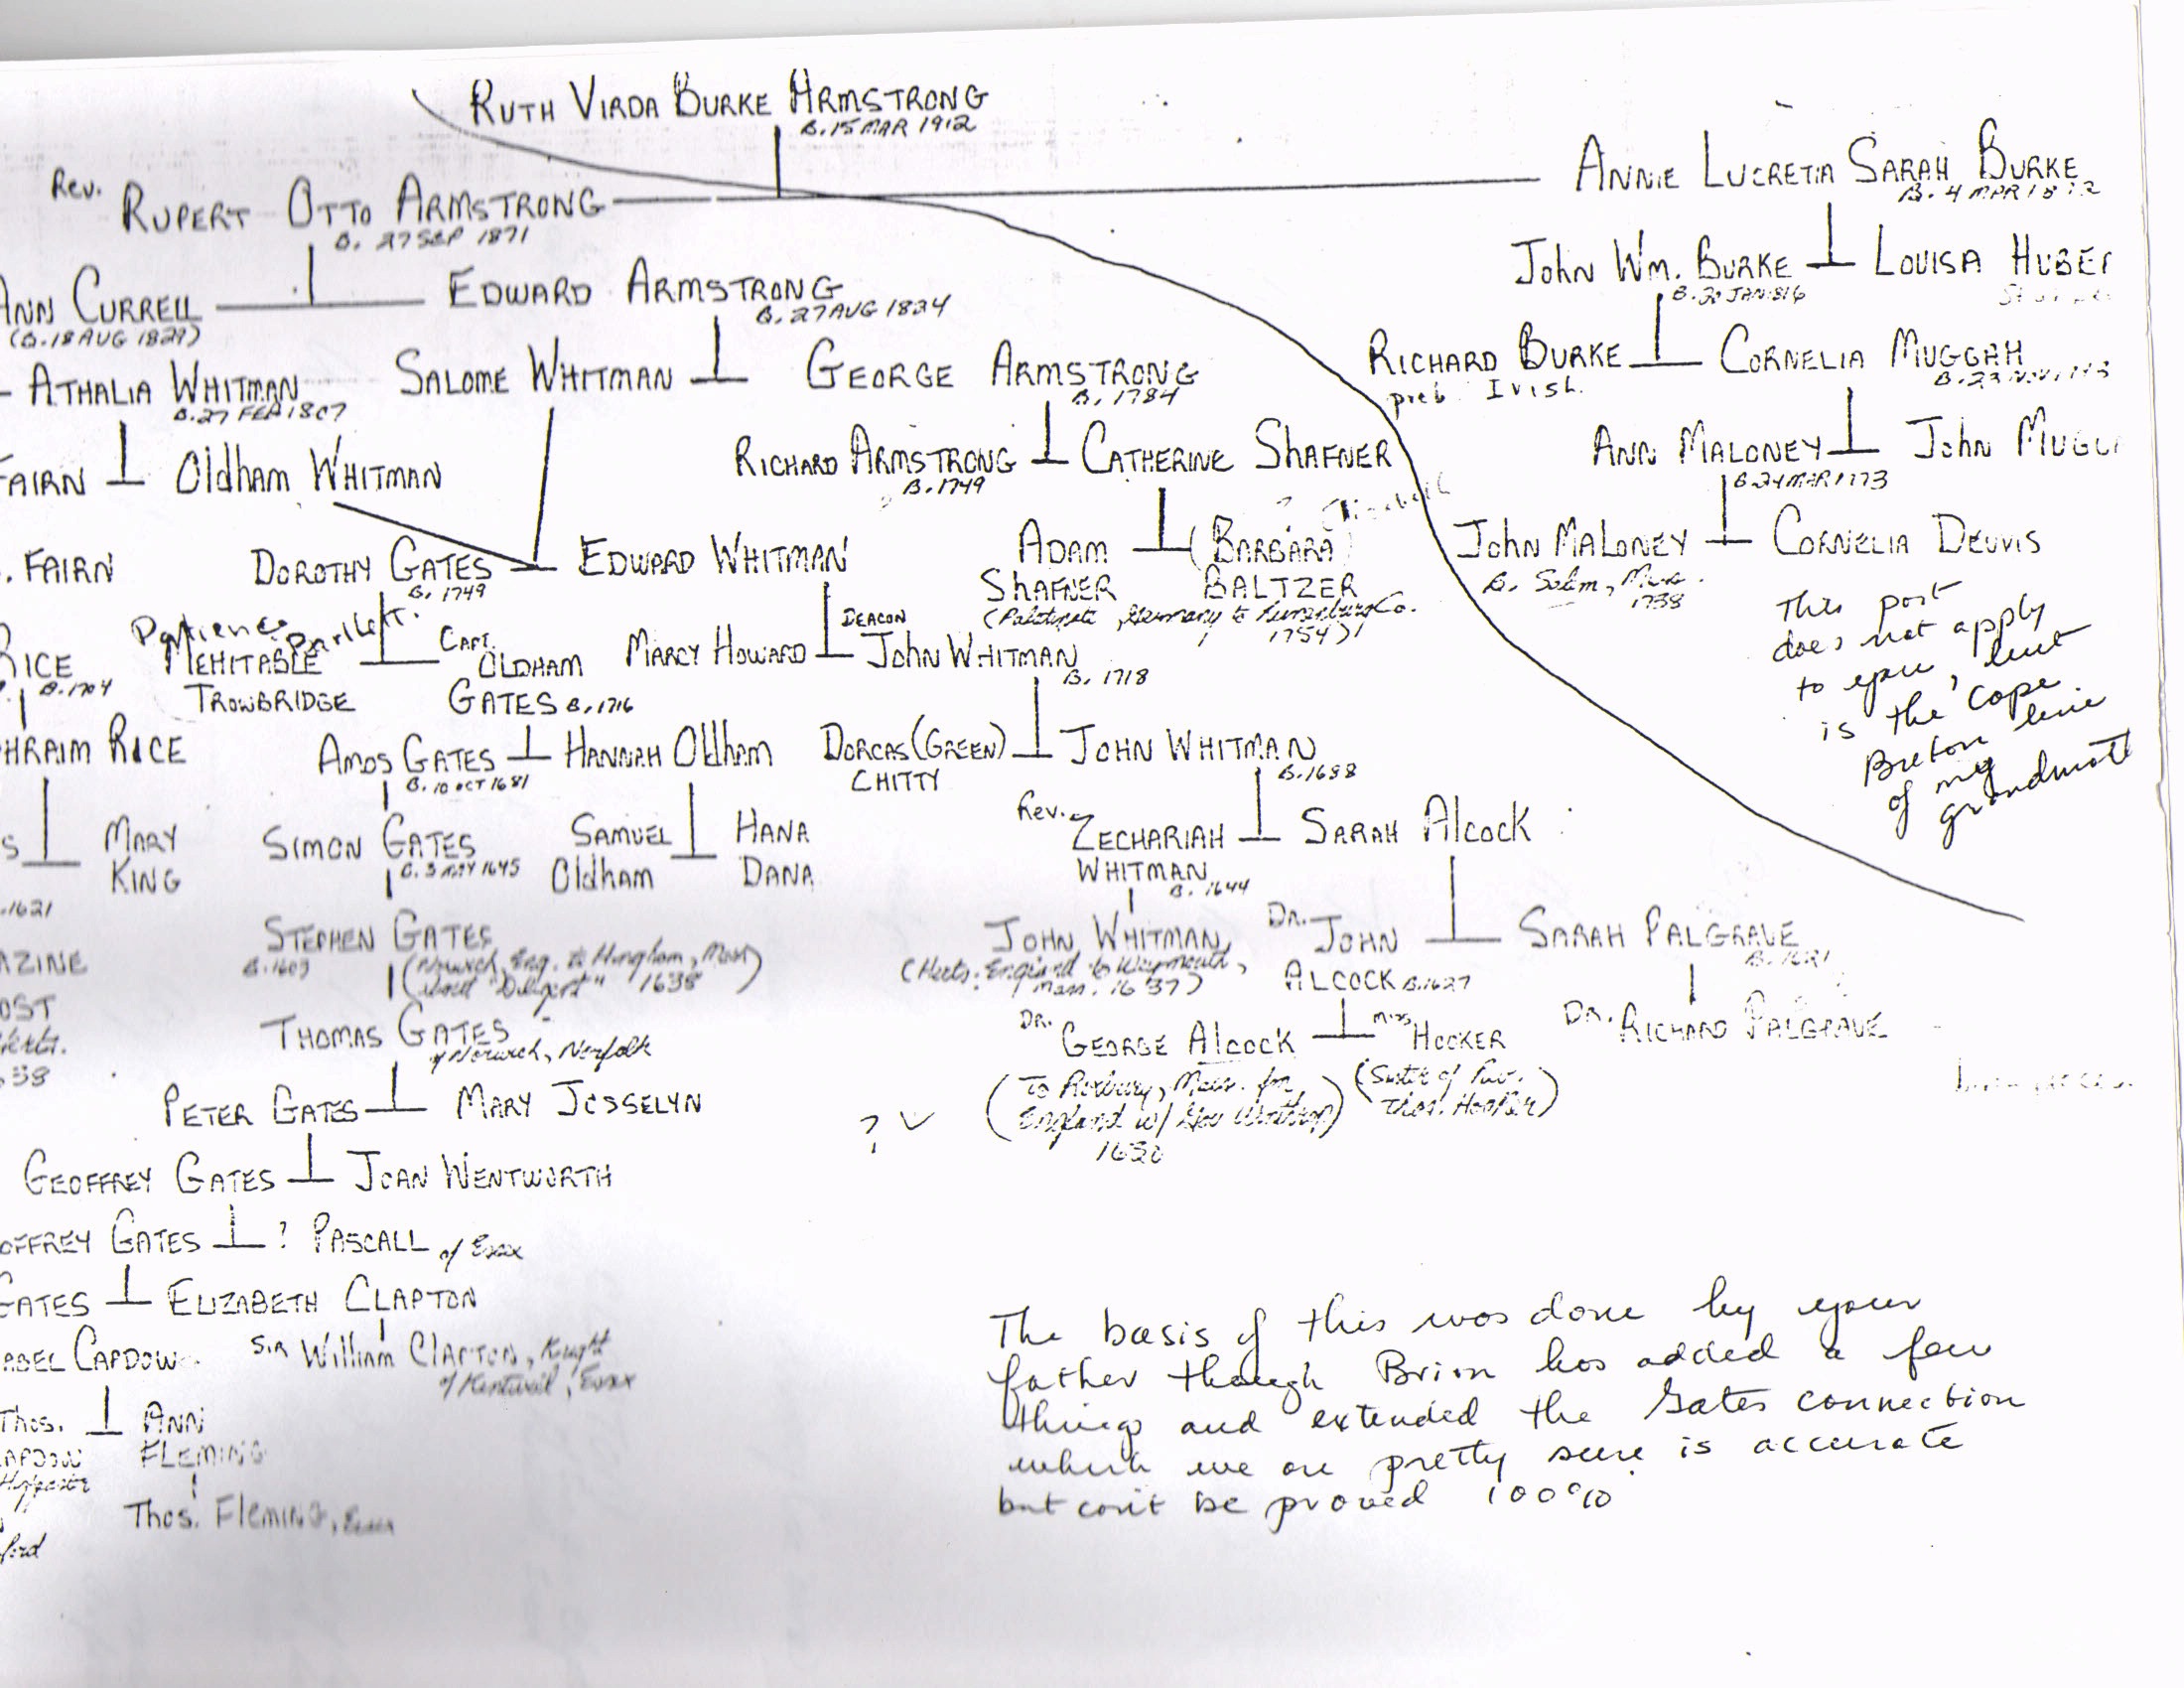 RUTH VIRDA BURKE ARMSTRONG
B. 15 MAR 1912
Rev. RUPERT OTTO ARMSTRONG
B. 27 SEP 1871
ANNIE LUCRETIA SARAH BURKE
B. 4 MAR
ANN CURRELL
(B. 18 AUG 1829)
EDWARD ARMSTRONG
B. 27 AUG 1824
John Wm. BURKE
LOUISA HUBER
B. 20 JAN 1816
ATHALIA WHITMAN
B. 27 FEB 1807
SALOME WHITMAN
GEORGE ARMSTRONG
B. 1784
RICHARD BURKE
prob. Irish.
CORNELIA MUGGAH
B. 23 NOV
FAIRN
Oldham WHITMAN
RICHARD ARMSTRONG
B. 1749
CATHERINE SHAFNER
ANN MALONEY
B. 24 MAR 1773
John
. FAIRN
DOROTHY GATES
B. 1749
EDWARD WHITMAN
ADAM SHAFNER
? Elizabeth
(BARBARA) BALTZER
(Palatinate, Germany to Lunenburg Co. 1754)
John MALONEY
B. Salem, Mass. 1738
CORNELIA DEUVIS
This part
does not apply
to you, but
is the Cape
Breton line
of my
RICE
B. 1704
Patience Bartlett.
MEHITABLE
TROWBRIDGE
CAPT. OLDHAM
GATES B. 1716
MARCY HOWARD
DEACON
John WHITMAN
B. 1718
HRAIM RICE
AMOS GATES
B. 10 OCT 1681
HANNAH Oldham
DORCAS (GREEN)
CHITTY
JOHN WHITMAN
B. 1688
S
MARY
KING
SIMON GATES
B. 3 MAY 1645
SAMUEL
Oldham
HANA
DANA
Rev. ZECHARIAH
WHITMAN
B. 1644
SARAH Alcock
.1621
STEPHEN GATES
B. 1603
(Norwich, Eng. to Hingham, Mass
about "Diligent" 1638)
JOHN WHITMAN
(Herts. England to Weymouth,
Mass. 1637)
DR. JOHN
ALCOCK B. 1627
SARAH PALGRAVE
B. 1621
AZINE
OST
Herts.
38
THOMAS GATES
of Norwich, Norfolk
DR. GEORGE Alcock
MISS HOOKER
DR. RICHARD PALGRAVE
(To Roxbury, Mass. from
England w/ Gov Winthrop)
1630
(Sister of Rev.
Thos. Hooker)
PETER GATES
MARY JOSSELYN
?
GEOFFREY GATES
JOAN WENTWORTH
OFFREY GATES
? PASCALL of Essex
GATES
ELIZABETH CLAPTON
ABEL CAPDOW
SIR William CLAPTON, Knight
of Kentwell, Essex
Thos.
ANN
FLEMING
APDOW
Thos. Fleming, Essex
ford
The basis of this was done by your
father though Brian has added a few
things and extended the Gates connection
which we are pretty sure is accurate
but can't be proved 100%